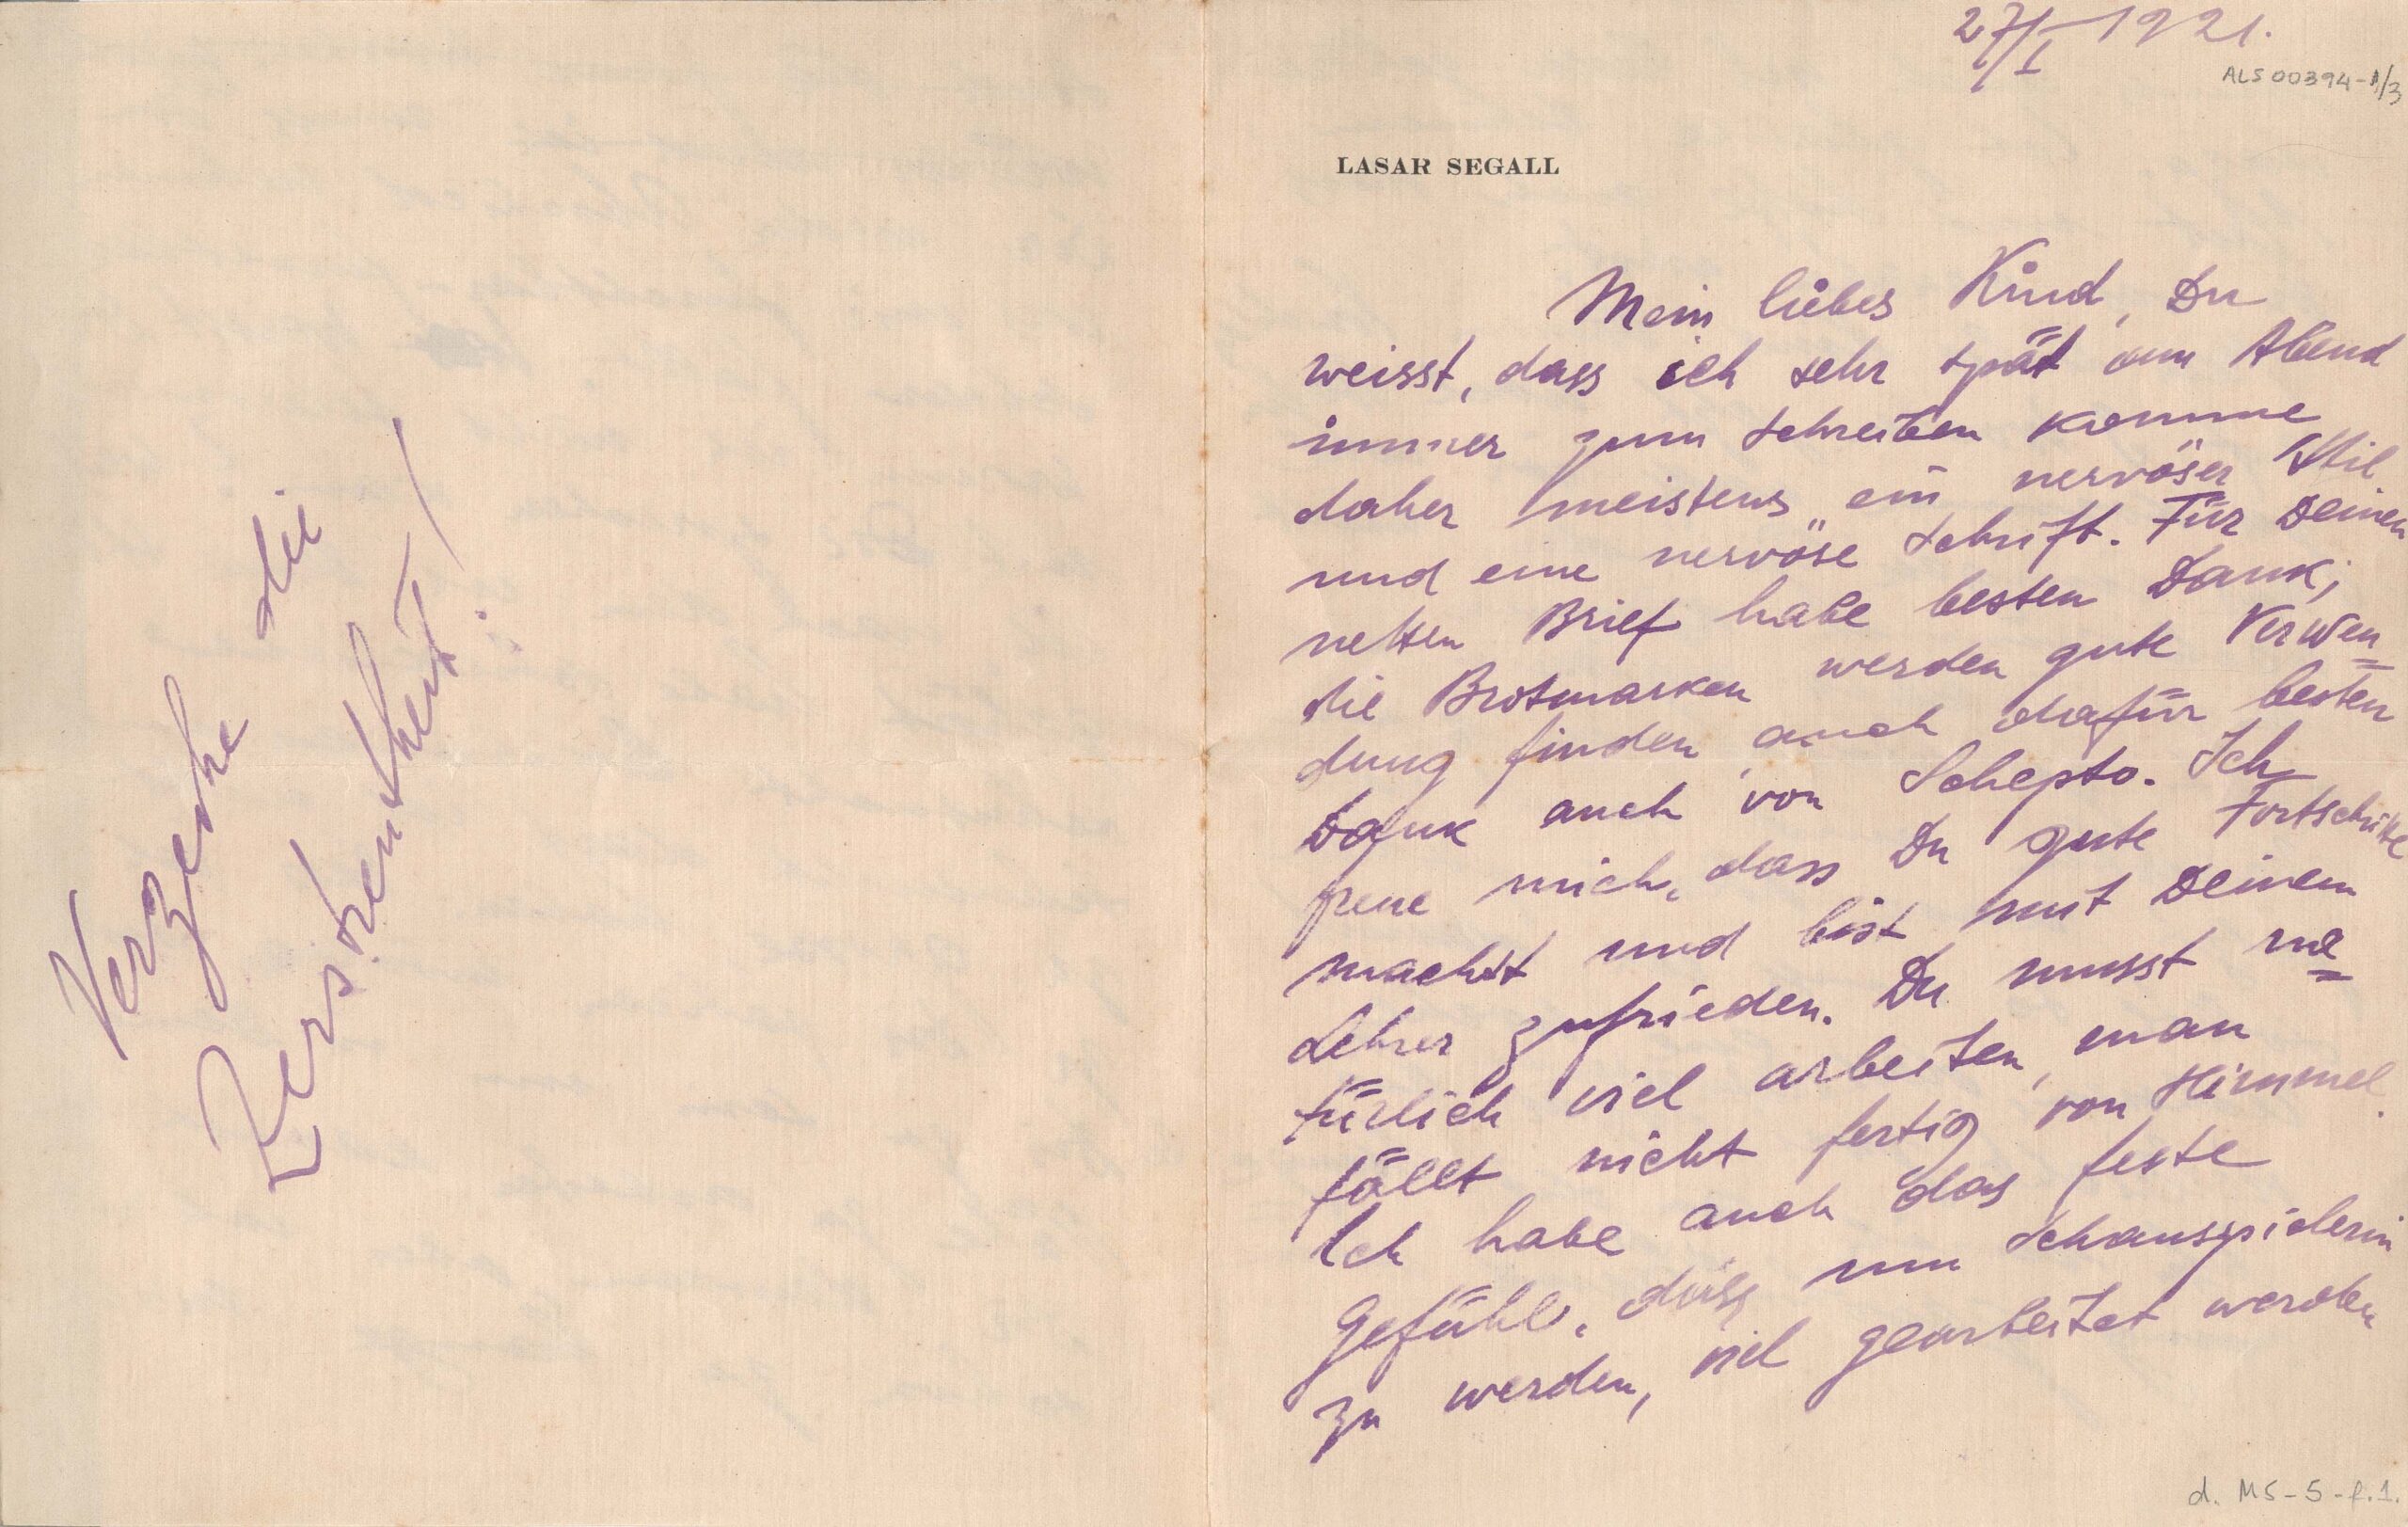 27/I 1921.
ALS 00394-1/3
LASAR SEGALL
Mein liebes Kind, Du
weisst, dass ich sehr spät am Abend
immer zum schreiben komme
daher meistens ein nervöser Stil
und eine nervöse Schrift. Für Deinen
netten Brief habe besten Dank;
die Brotmarken werden gute Verwen=
dung finden, auch dafür besten
Dank auch von Schepto. Ich
freue mich, dass Du gute Fortschritte
machst und bist mit Deinem
Lehrer zufrieden. Du musst na=
türlich viel arbeiten, man
fällt nicht fertig von Himmel.
Ich habe auch das feste
Gefühl, dass um Schauspielerin
zu werden, viel gearbeitet werden
d. MS-5-f.1.
Verzeihe die